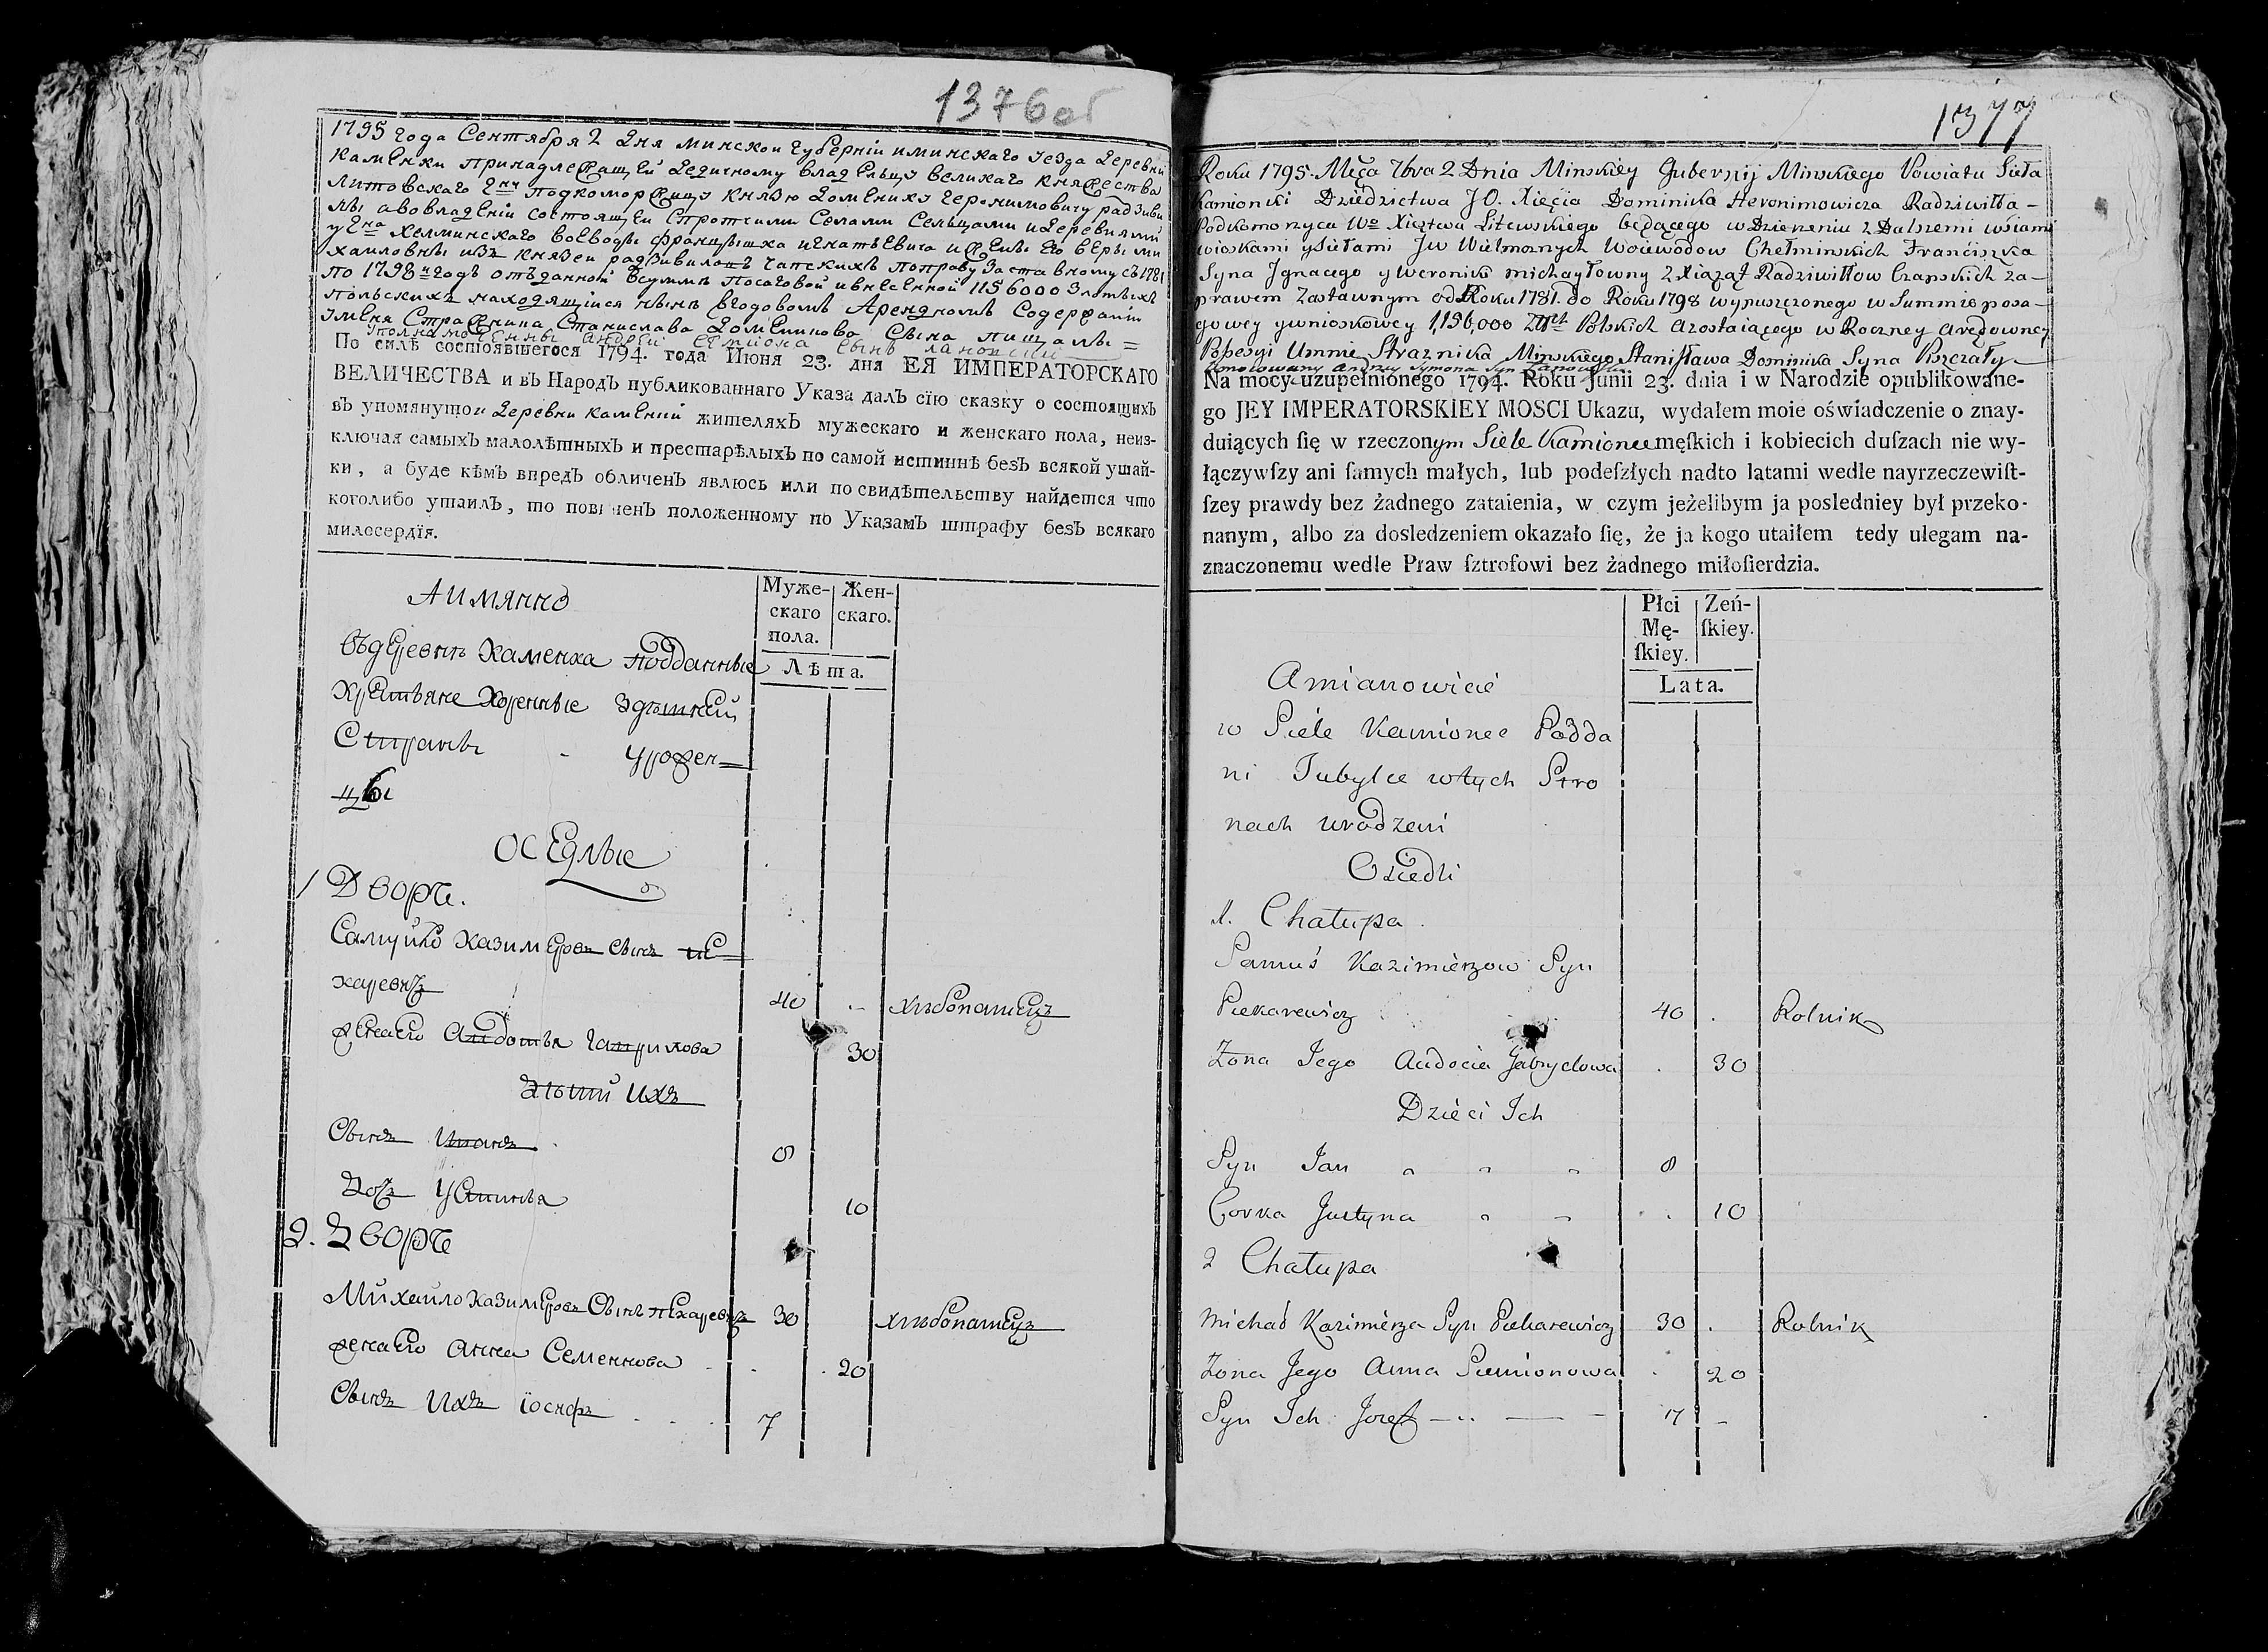 1376об
1795 года Сентября 2 дня минскои губернїи иминскаго уезда деревни
Каменки принадлежащей дедичному владельцу великаго княжества
Литовскаго подкоморжицу князю доменику геронимовичу радзиви
лы авовладенїи состоящеи спротчими Селами Сельцами идеревнями
Хелминскаго воеводы францышка игнатьевича ижены его веры ми
хаиловны изъ князеи радзивилонъ чапскихъ поправу заставному съ 1781
по 1798 годъ отъданной всуммъ посаговой ивнесенной 1156000 злотыхъ
польскихъ находящїися нынѣ вгодовомъ Арендномъ Содержанїи
Умена Стражника Станислава доменикова Сына пищалы =
Уполнамоченны андрей Сымиона Сынъ лановский
По силѣ состоявшегося 1794. года Июня 23. дня ЕЯ ИМПЕРАТОРСКАГО
ВЕЛИЧЕСТВА и въ Народъ публикованнаго Указа далъ сїю сказку о состоящихъ
въ упомянутои деревни каменки жителяхъ мужескаго и женскаго пола, неиз-
ключая самыхъ малолѣтныхъ и престарѣлыхъ по самой истиннѣ безъ всякой утай-
ки, а буде кѣмъ впредъ обличенъ явлюсь или по свидѣтельству найдется что
коголибо утаилъ, то повиненъ положенному по Указамъ штрафу безъ всякаго
милосердїя.
Муже-скаго пола. Жен-скаго.
Лѣта.
Аимянно
Въдеревнѣ Каменка подданные
Крестьяне Коренные здѣшней
Страны - урожен=
цы
Оседлые
1 Дворъ.
Самуйло Казимеровъ Сынъ пе=
каревичъ 40 .. хлѣбопашецъ
жена его Авдотья Гаврилова 30
Дѣти ихъ
Сынъ Иванъ 8
Дочъ Устинья 10
2. Дворъ
Михайло Казимеровъ Сынъ пекаревичъ 30 хлѣбопашецъ
жена его Анна Семеннова 20
Сынъ Ихъ їосифъ 7
1377
Roku 1795. Męca 7bra 2 Dnia Minskiey Gubernij Minskiego Powiatu Sieła
Kamionki Dziedzictwa JO. Xięcia Dominika Heronimowicza Radziwiłła -
Podkomorzyca Wo Xięztwa Litewskiego będącego w Dzierzeniu z Dalszemi wsiami
wioskami ysiełami Jw Wielmoznych Woiewodow Chełminskich Franciszka
Syna Jgnacego y Weroniki michayłowny z Xiążąt Radziwiłłow Czapskich za-
prawem Zastawnym od Roku 1781. do Roku 1798 wypuszczonego w Summie posa-
gowey ywnioskowey 1,156,000 Złłch Polskich azostaiącego w Roczney arędowney
Possesyi Umnie Straznika Minskiego Stanisława Dominika Syna Piszczały
Andrzy Symona Syn Łanowski
Na mocy uzupełnionego 1794. Roku Junii 23. dnia i w Narodzie opublikowane-
go JEY IMPERATORSKIEY MOSCI Ukazu, wydałem moie oświadczenie o znay-
duiących ſię w rzeczonym Siele Kamionce męſkich i kobiecich duſzach nie wy-
łączywſzy ani ſamych małych, lub podeſzłych nadto latami wedle nayrzeczewiſt-
ſzey prawdy bez żadnego zataienia, w czym jeżelibym ja posledniey był przeko-
nanym, albo za dosledzeniem okazało ſię, że ja kogo utaiłem tedy ulegam na-
znaczonemu wedle Praw ſztrofowi bez żadnego miłoſierdzia.
Płci Mę-ſkiey. Zeń-ſkiey.
Lata.
Amianowicie
w Siele Kamionce Podda
ni Tubylce wtych Stro
nach urodzeni
Osiedli
1. Chałupa.
Samuś Kazimierzow Syn
Piekarewicz 40 . Rolnik
Zona Jego Audocia Gabryelowa . 30
Dzieci Ich
Syn Jan 8
Corka Justyna 10
2 Chałupa
Michaś Kazimierza Syn Piekarewicz 30 . Rolnik
Zona Jego Anna Siemionowa . 20
Syn Ich Jozef 7 -